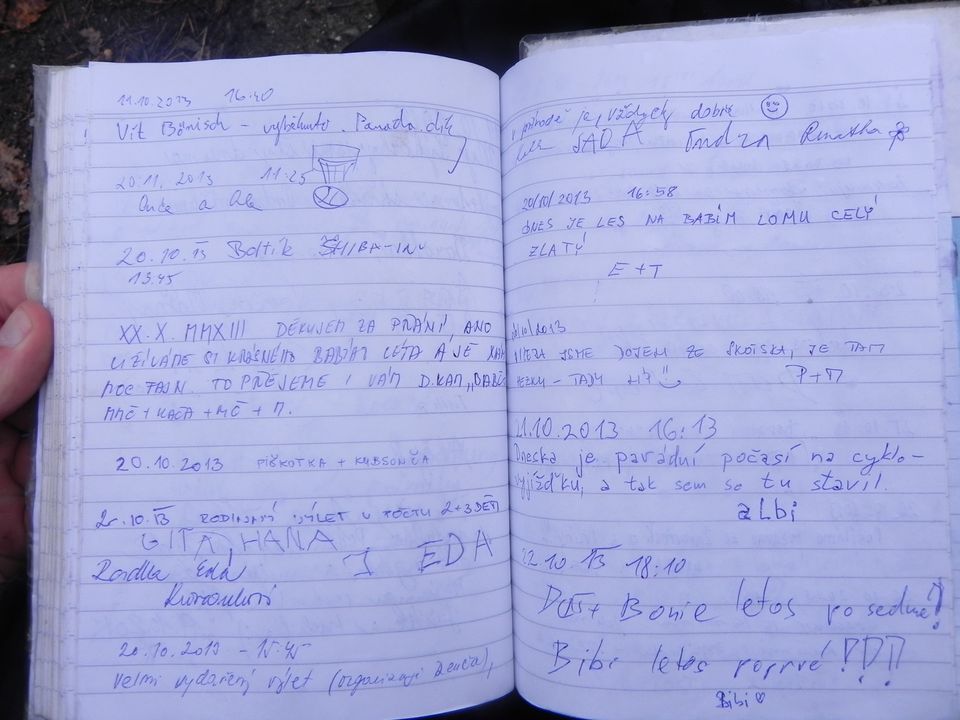 11.10.2013 16:40
Vít Bönisch - vyběhnuto. Paráda, dík
20.11. 2013 11:25
a Ola
20.10.13 Baltík SHIBA-INU
13.45
XX.X. MMXIII DĚKUJEM ZA PŘÁNÍ, ANO
UŽÍVÁME SI KRÁSNÉHO BABÍM LÉTA A JE
MOC FAJN. TO PŘEJEME I VÁM
MMČ + KAČA + MČ + M.
20.10.2013 PIŠKOTKA + KUBSONČA
20.10.13 RODINNÝ VÝLET V POČTU 2+3 DĚTI
GITA, HANA
1 EDA
Radka Eda
20.10.2013 - 15:45
velmi vydařený výlet (organizuji Zenča),
v přírodě je vždycky dobře
SAĎA Renatka
20/10/2013 16:58
DNES JE LES NA BABÍM LOMU CELÝ
ZLATÝ
E + T
10/2013
JSME DOJEM ZE SKOTSKA, JE TAM
HEZKY - TADY
P + M
21.10.2013 16:13
Dneska je parádní počasí na cyklo-
vyjížďku, a tak sem se tu stavil.
albi
22.10.13 18:10
Bonie letos po sedmé!
Bibi letos poprvé!!!!
Bibi ♡